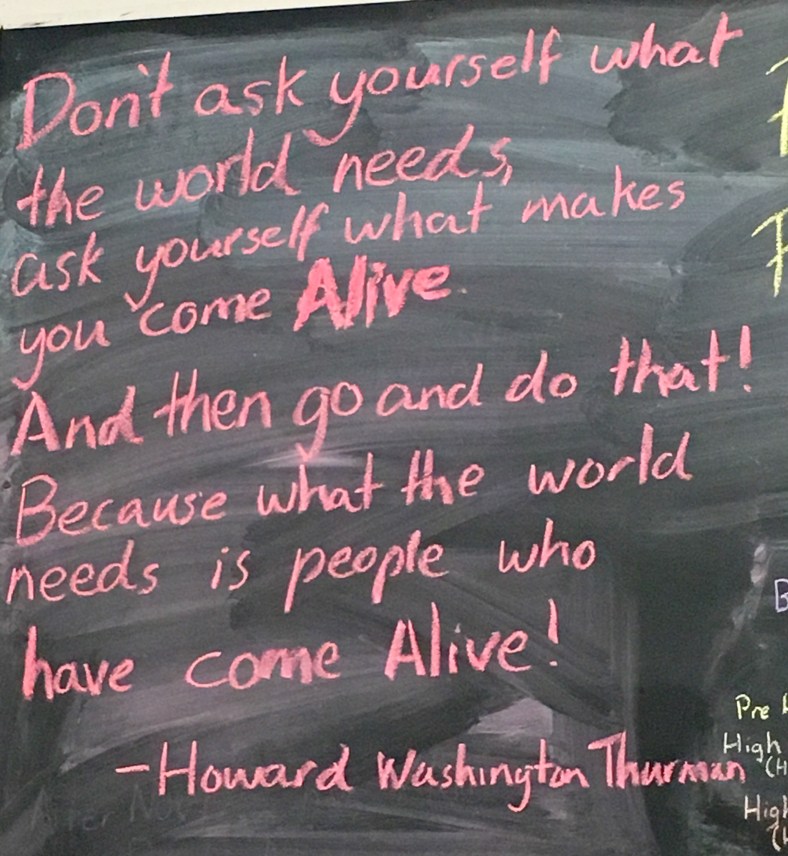 Don't ask yourself what
the world needs,
ask yourself what makes
you come Alive.
And then go and do that!
Because what the world
needs is people who
have come Alive!
-Howard Washington Thurman
Pre
High
High